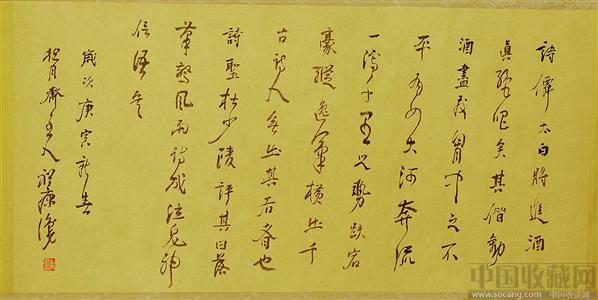 詩僊太白將進酒
真絕唱矣其借勸
酒盡發胸中之不
平有如大河奔流
一瀉千里之勢跌宕
豪縱逸筆橫出千
古詩人無出其右者也
詩聖杜少陵評其曰落
筆驚風雨詩成泣鬼神
信矣
歲次庚寅新春
月齋主人
中国收藏网
www.socang.com